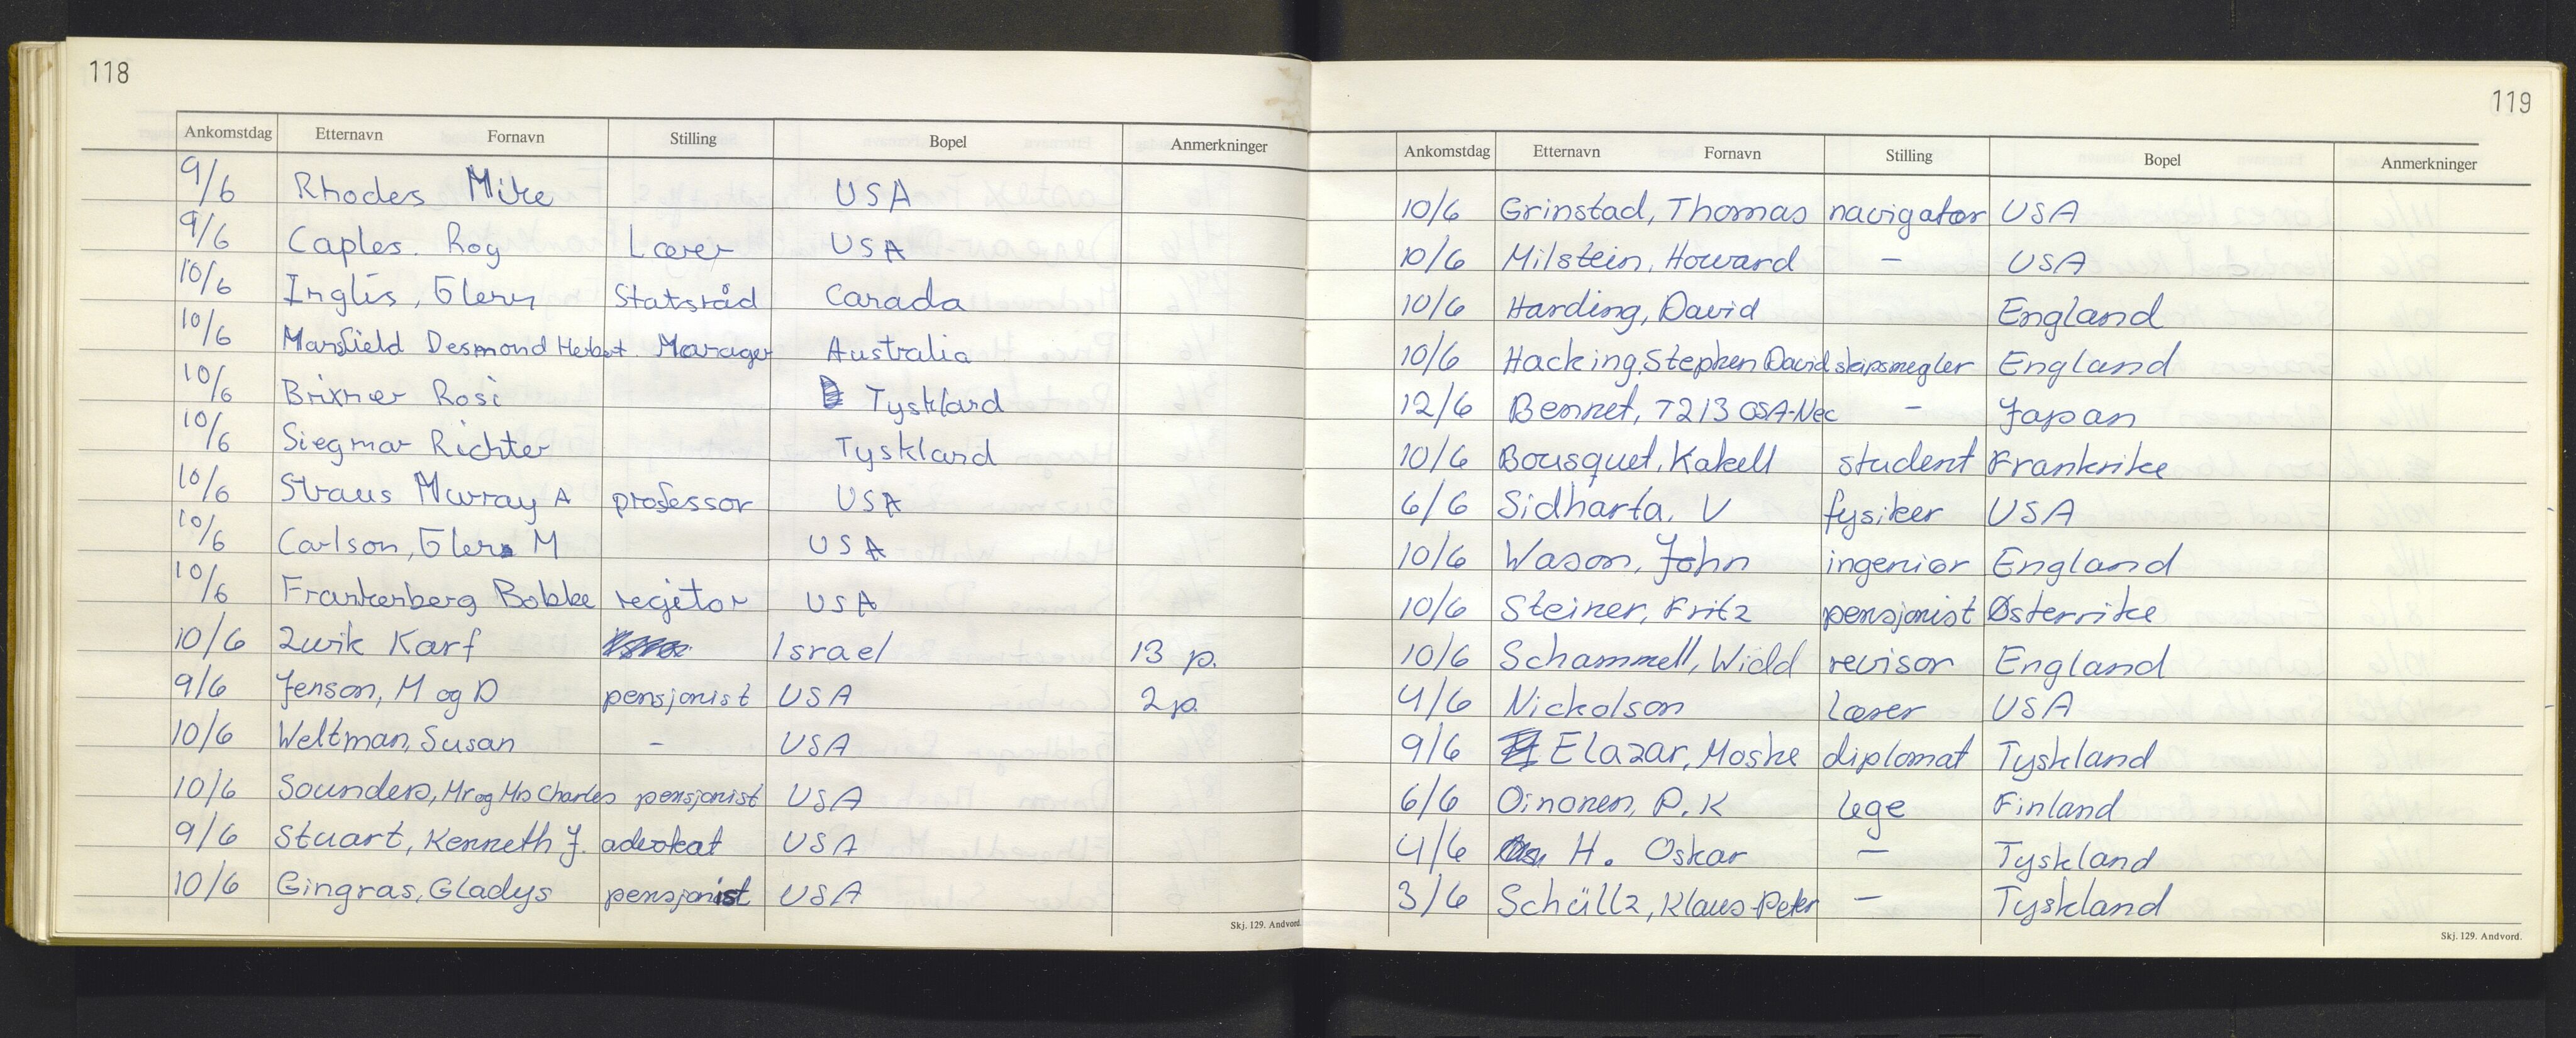 118
Ankomstdag Etternavn Fornavn Stilling Bopel Anmerkninger
9/6 Rhodes Mike USA
9/6 Caples. Roy Lærer USA
10/6 Inglis, Glenn Statsråd Canada
10/6 Mansfield Desmond Herbert Manager Australia
10/6 Brixner Rosi Tyskland
10/6 Siegmar Richter Tyskland
10/6 Straus Murray A professor USA
10/6 Carlson, Glenn M USA
10/6 Frankenberg Bobbe regjetor USA
10/6 Zwik Karf Israel 13 p.
9/6 Jenson, M og D pensjonist USA 2 p.
10/6 Weltman, Susan - USA
10/6 Sounders, Mr og Mrs Charles pensjonist USA
9/6 Stuart, Kenneth J. advokat USA
10/6 Gingras, Gladys pensjonist USA
Skj. 129. Andvord.
119
Ankomstdag Etternavn Fornavn Stilling Bopel Anmerkninger
10/6 Grinstad, Thomas navigatør USA
10/6 Milstein, Howard - USA
10/6 Harding, David England
10/6 Hacking, Stephen David skipsmegler England
12/6 Bennet, T213 OSA-Nec - Japan
10/6 Bousquet, Kakell student Frankrike
6/6 Sidharta, V fysiker USA
10/6 Wason, John ingeniør England
10/6 Steiner, Fritz pensjonist Østerrike
10/6 Schammell, Widd revisor England
4/6 Nickolson Lærer USA
9/6 Elazar, Moshe diplomat Tyskland
6/6 Oinonen, P. K lege Finland
4/6 H. Oskar - Tyskland
3/6 Schüllz, Klaus-Peter - Tyskland
Skj. 129. Andvord.